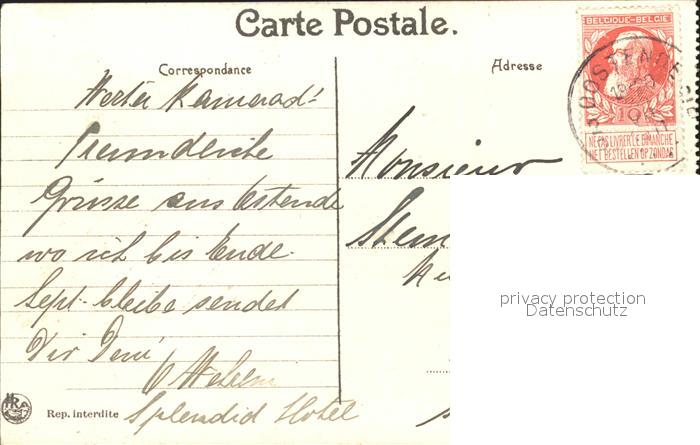 Carte Postale.
Correspondance
Adresse
Werter Kamerad!
Freundliche
Grüsse aus Ostende
wo ich bis Ende
Sept. bleibe sendet
Dir Dein
Splendid Hotel
Rep. interdite
Monsieur
BELGIQUE-BELGIE
10
NE PAS LIVRER LE DIMANCHE
NIET BESTELLEN OP ZONDAG
OOSTENDE
privacy protection
Datenschutz